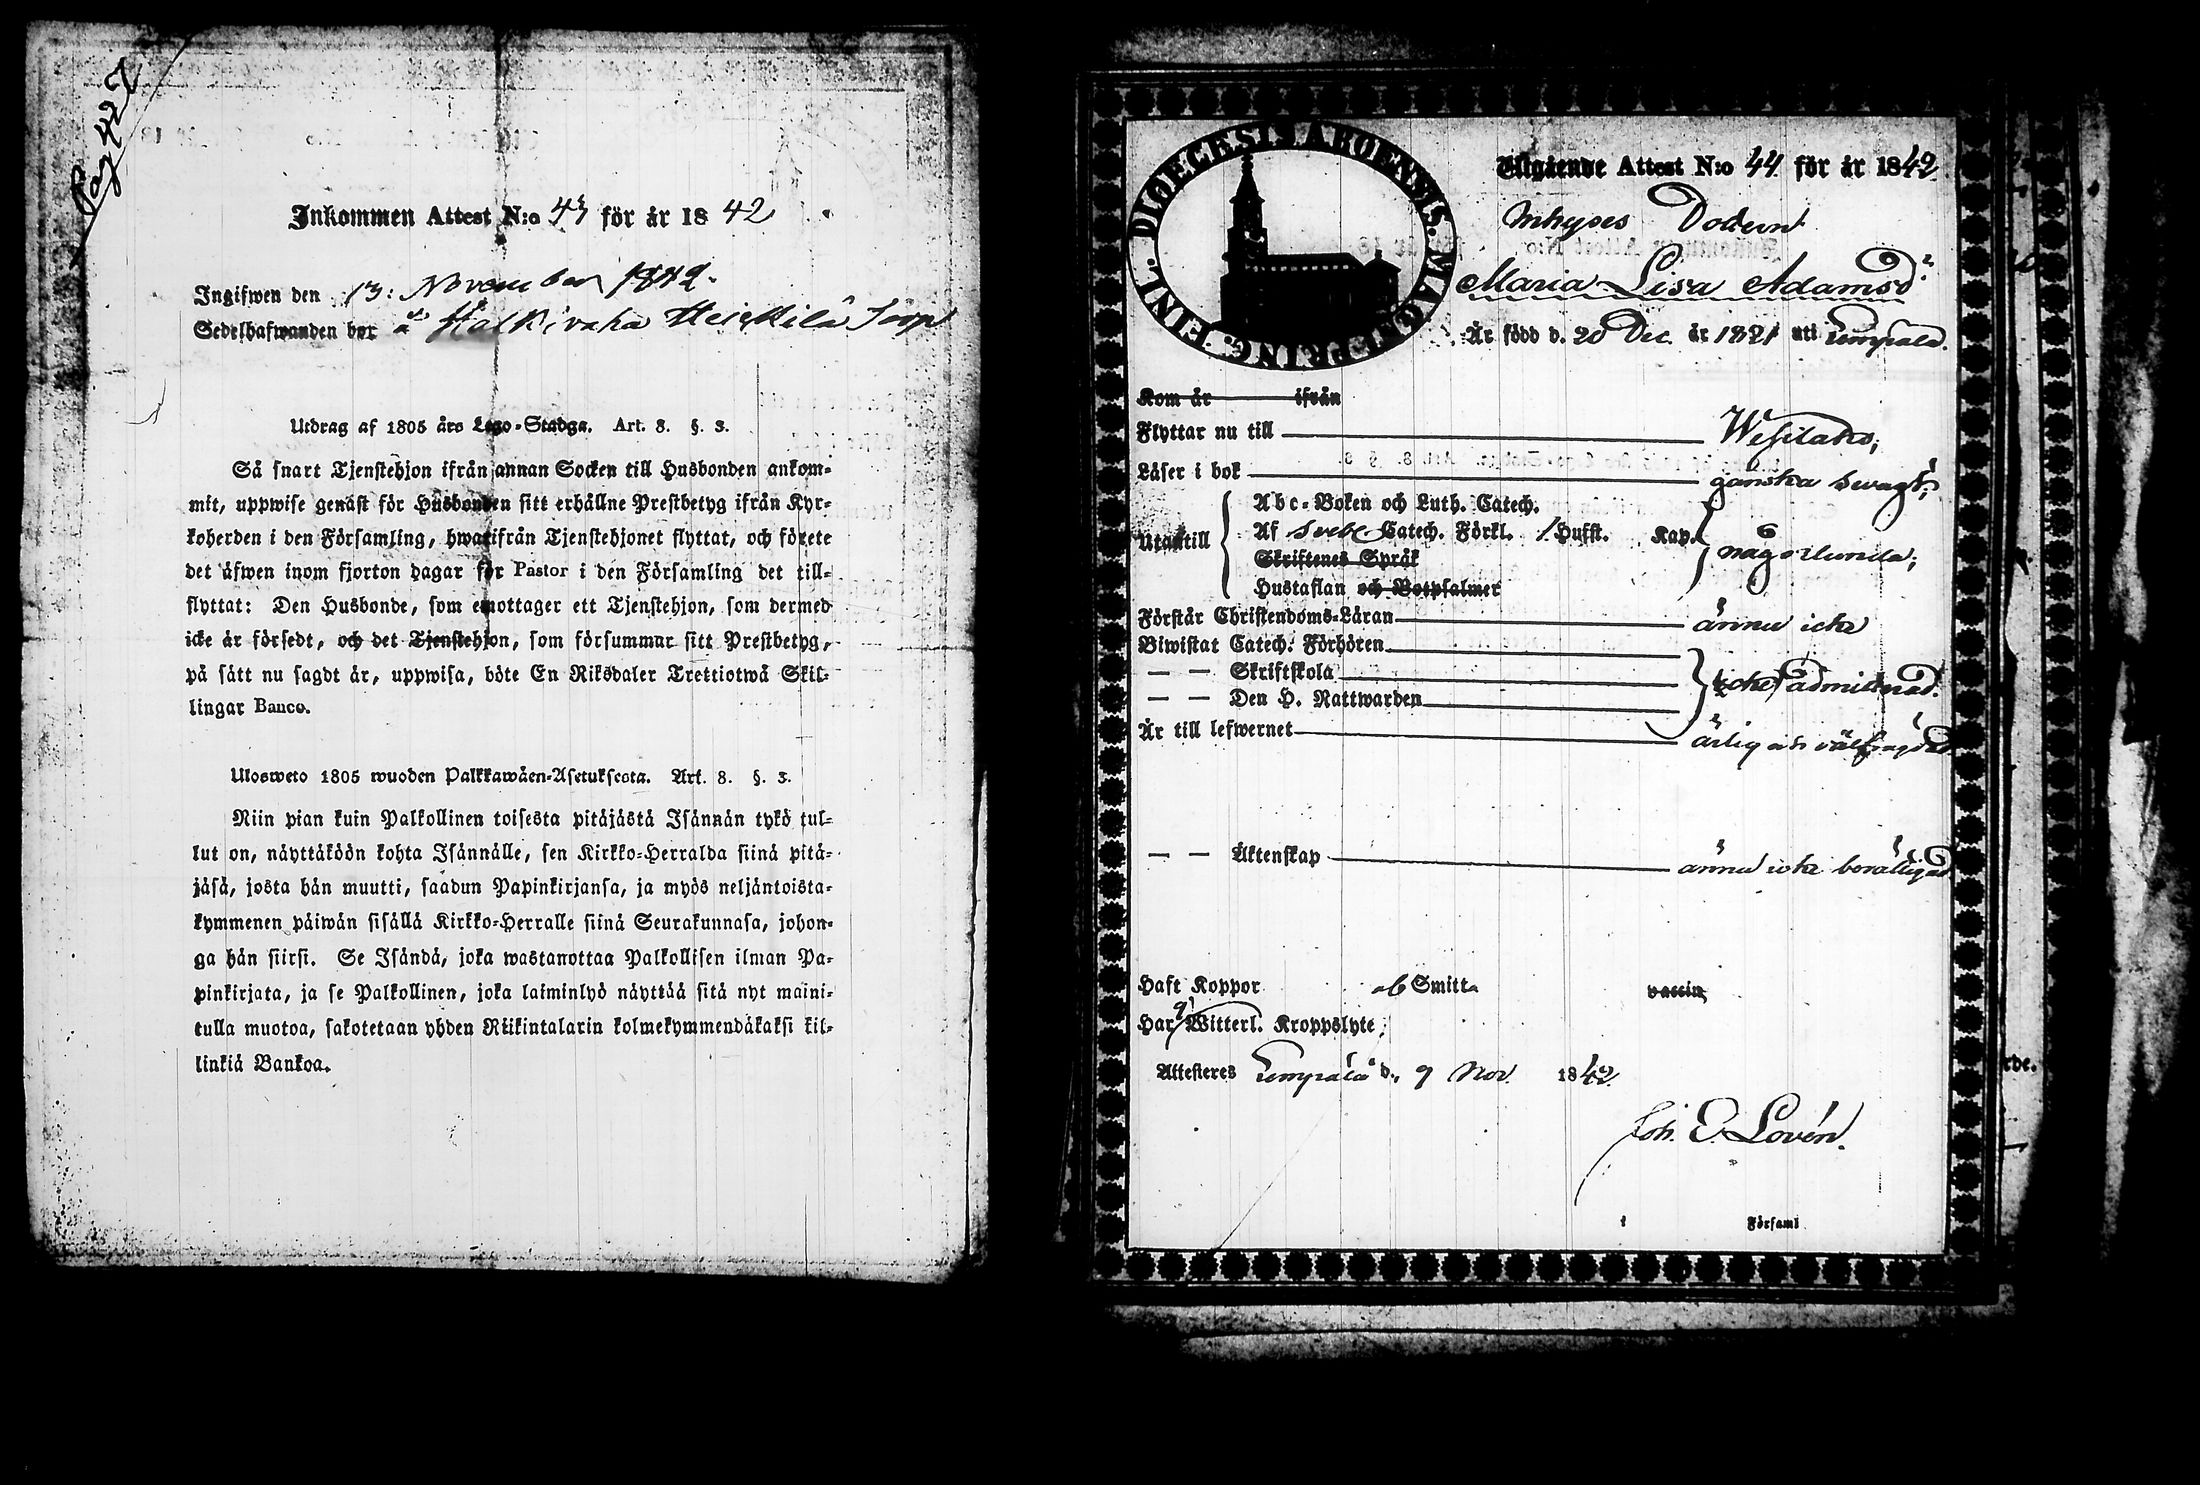 Pag 427
Inkommen Attest N:o 43 för år 1842
Ingifwen den 13: November 1842.
Sedelhafwanden bor å Halkivaha Heikkilä Torp
Utdrag af 1805 års Lego-Stadga. Art. 8. §. 3.
Så snart Tjenstehjon ifrån annan Socken till Husbonden ankom-
mit, uppwise genast för Husbonden sitt erhållne Prestbetyg ifrån Kyr-
koherden i den Församling, hwarifrån Tjenstehjonet flyttat, och förete
det äfwen inom fjorton dagar för Pastor i den Församling det till-
flyttat: Den Husbonde, som emottager ett Tjenstehjon, som dermed
icke är försedt, och det Tjenstehjon, som försummar sitt Prestbetyg,
på sätt nu sagdt är, uppwisa, böte En Riksdaler Trettiotwå Skil-
lingar Banco.
Ulosweto 1805 wuoden Palkkawäen-Asetuksesta. Art. 8. §. 3.
Niin pian kuin Palkollinen toisesta pitäjästä Isännän tykö tul-
lut on, näyttäköön kohta Isännälle, sen Kirkko-Herralda siinä pitä-
jäsä, josta hän muutti, saadun Papinkirjansa, ja myös neljäntoista-
kymmenen päiwän sisällä Kirkko-Herralle siinä Seurakunnasa, johon-
ga hän siirsi. Se Isändä, joka wastanottaa Palkollisen ilman Pa-
pinkirjata, ja se Palkollinen, joka laiminlyö näyttää sitä nyt maini-
tulla muotoa, sakotetaan yhden Riikintalarin kolmekymmendäkaksi kil-
linkiä Bankoa.
DIOECESIS ABOENSIS. MAGNI PRINC. FINL.
Utgående Attest N:o 44 för år 1842
Inhyses Dottern
Maria Lisa Adamsd:r
Är född d. 20 Dec. år 1821 uti Lempälä.
Kom år ifrån
Flyttar nu till Wesilaks;
Läser i bok ganska swagt;
Utantill
Abc-Boken och Luth. Catech.
Af Sveb. Catech. Förkl. / Hufst. Kap.
Skriftenes Språk
Hustaflan och Botpsalmer
någorlunda;
Förstår Christendoms-Läran ännu icke
Biwistat Catech. Förhören
— — Skriftskola
— — Den H. Nattwarden
icke admitterad.
Är till lefwernet ärlig och välfrägdad
— — Äktenskap ännu icke berättigad
Haft Koppor af Smitta vaccin
Har ej Witterl. Kroppslyte;
Attesteres Lempälä d. 9 Nov. 1842.
Joh. E. Lovén.
Församl